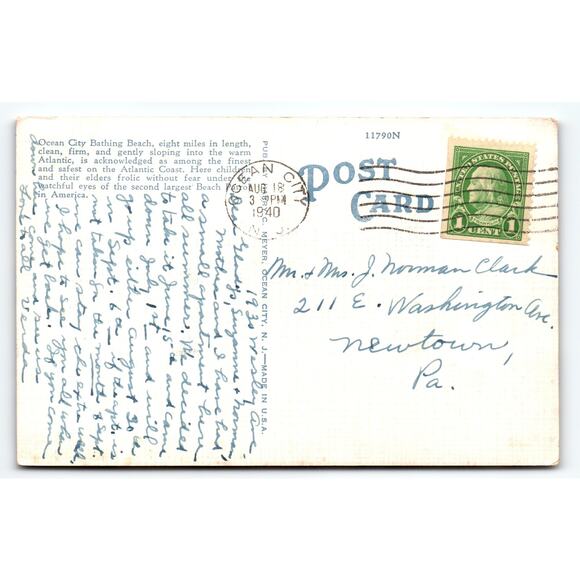 11790N
Ocean City Bathing Beach, eight miles in length,
clean, firm, and gently sloping into the warm
Atlantic, is acknowledged as among the finest
and safest on the Atlantic Coast. Here children
and their elders frolic without fear under
watchful eyes of the second largest Beach
in America.
POST
CARD
OCEAN CITY
AUG 18
3 PM
1940
N. J.
UNITED STATES POSTAGE
1 1
CENT
MEYER, OCEAN CITY, N. J.—MADE IN U.S.A.
Mr. + Mrs. J. Norman Clark
211 E. Washington Ave.
Newtown,
Pa.
1936 Wesley Ave.
Gladys, Suzanne + Norman
Mother and I have had
a small apartment here
all summer. We decided
to take it June 15th and came
down July 1st — and will
go up either August 30 or
Sept. 6th — if the apt. is
not taken for the month of Sept.
we can stay the extra week.
I hope to see you all when
we get back. If you come
down this way and see us
Love to all